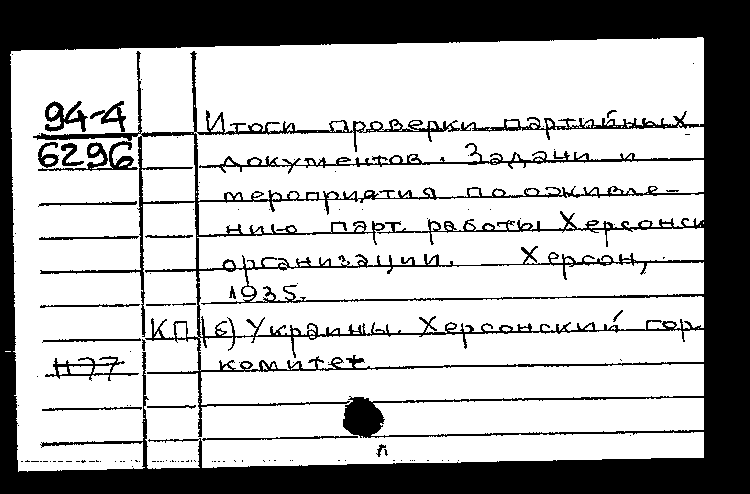 94-4
6296
Итоги проверки партийных
документов. Задачи и
мероприятия по оживле-
нию парт. работы Херсонск
организации. Херсон,
1935.
КП(б) Украины. Херсонский гор.
комитет
Н77
п